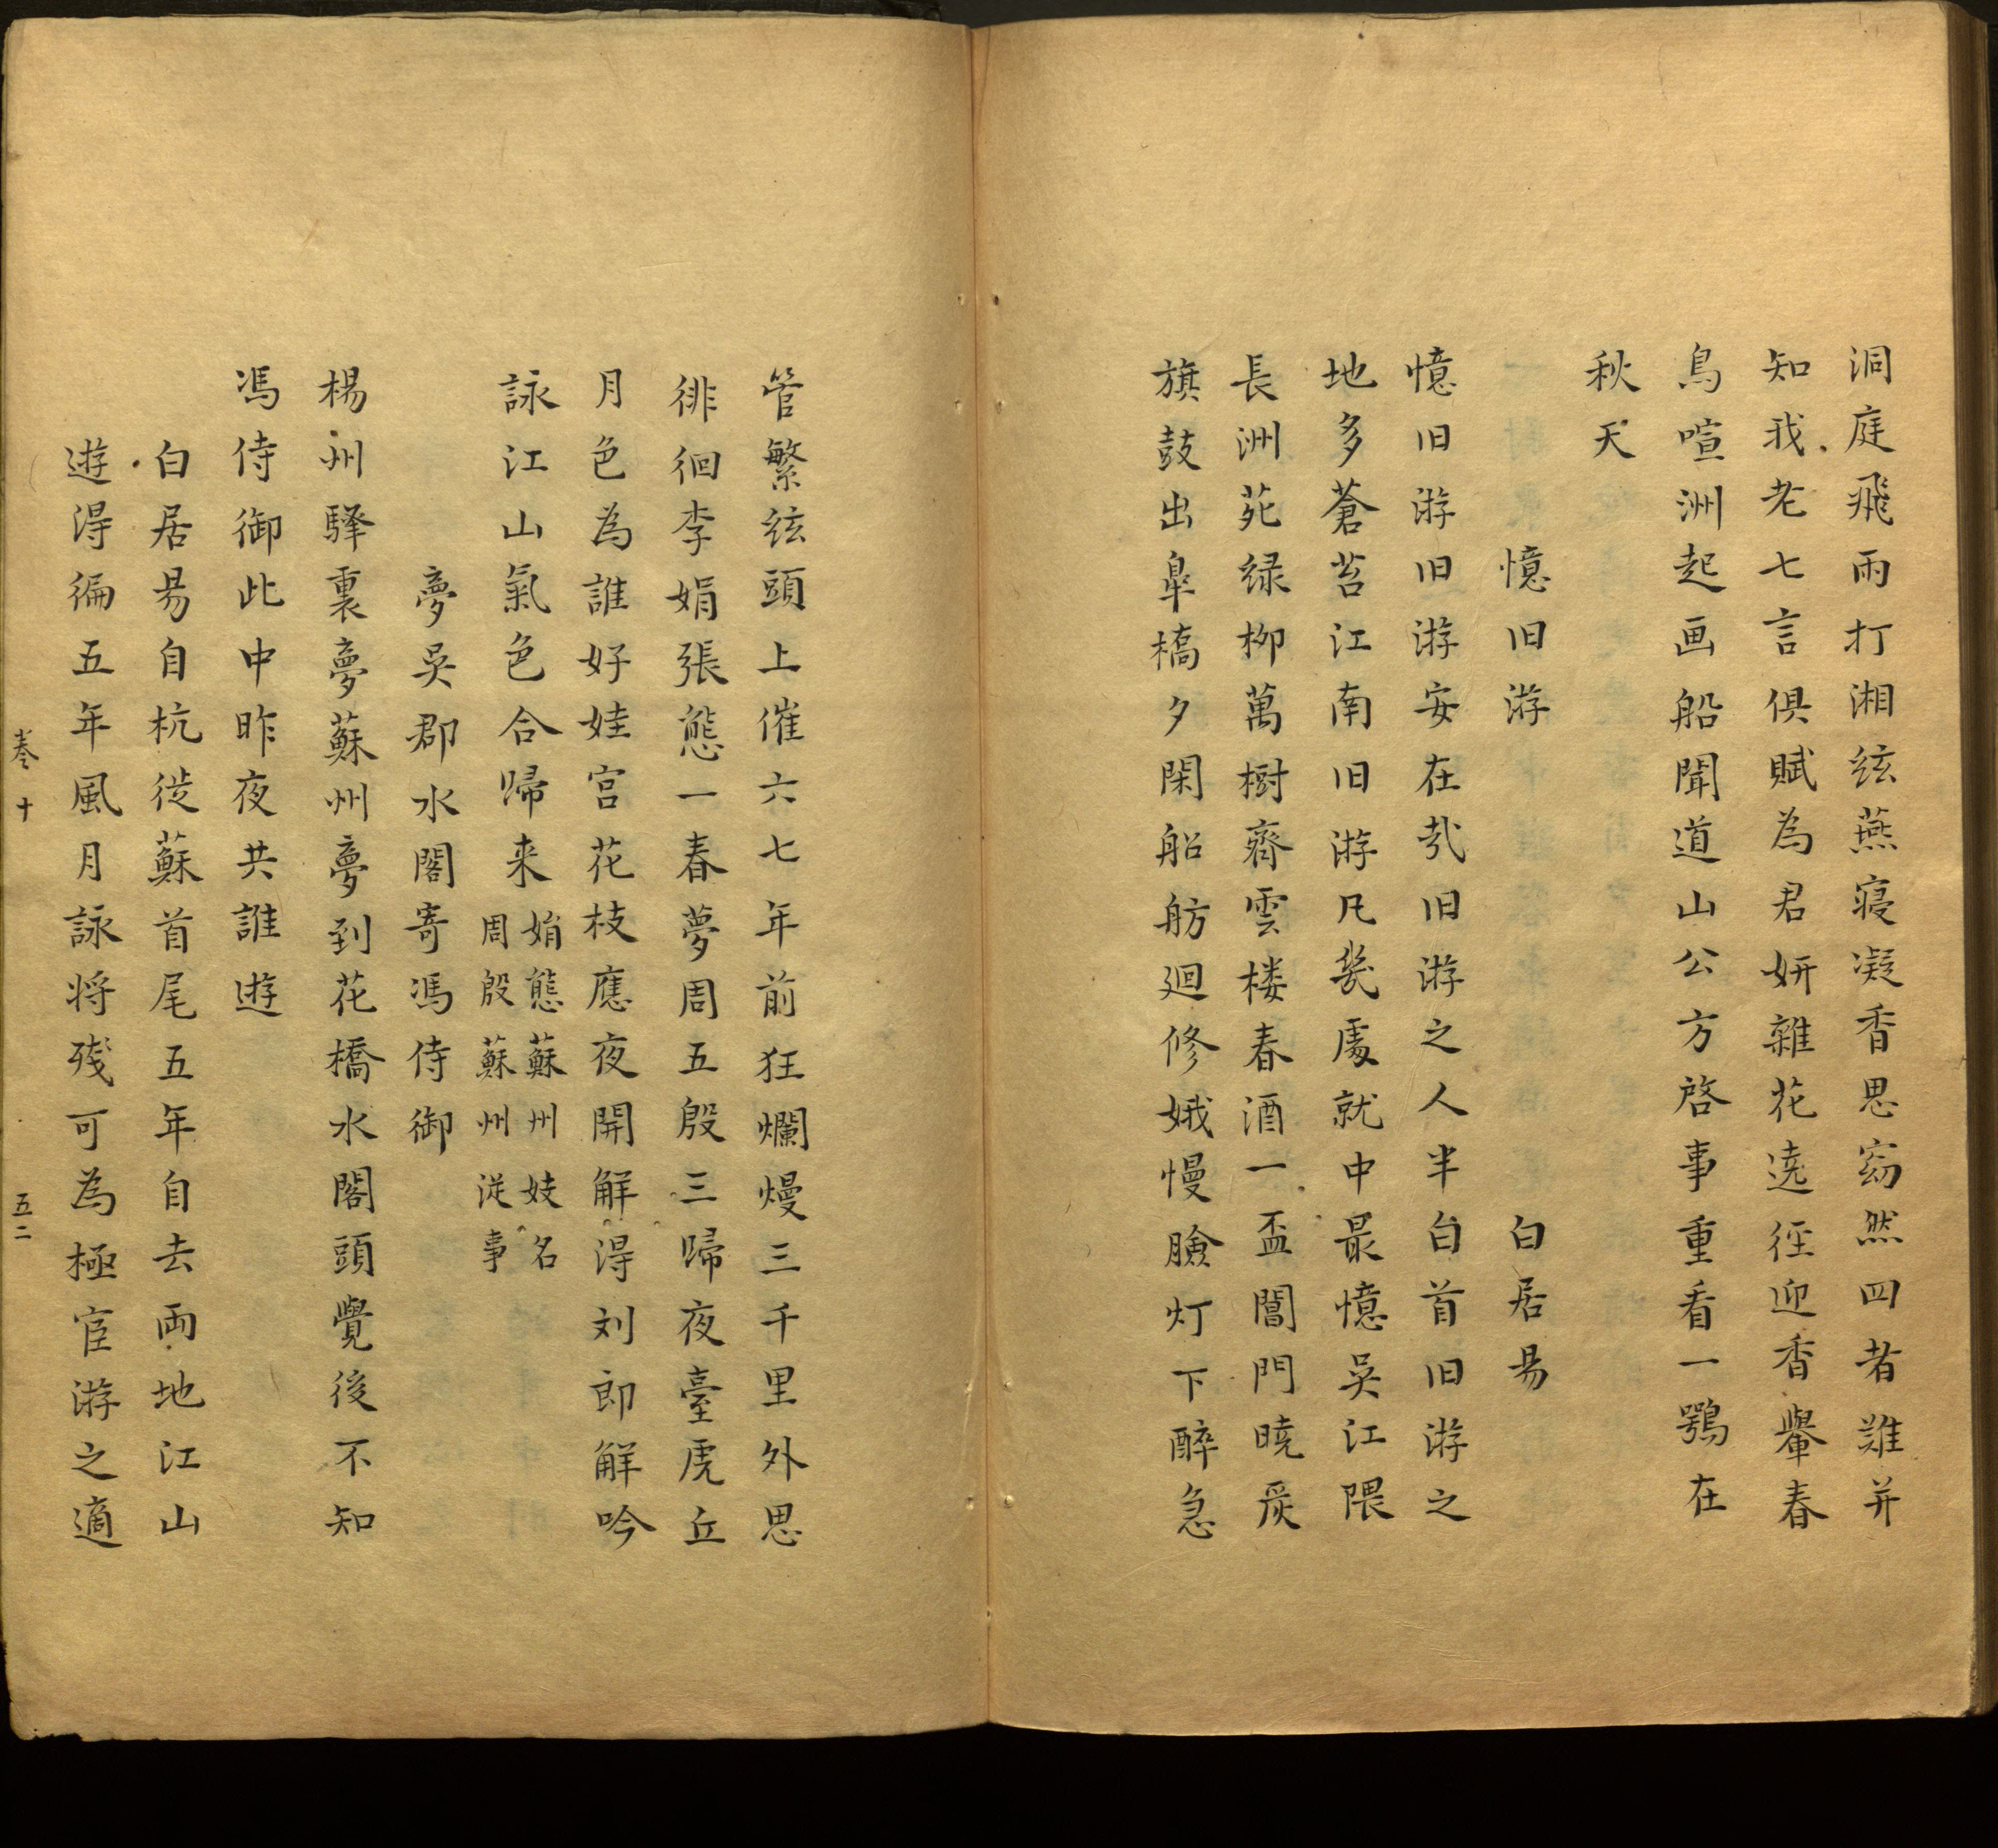 洞庭飛雨打湘絃燕寝凝香思窈然四者難并
知我老七言俱賦為君妍雜花遶徑迎香轝春
鳥喧洲起画船聞道山公方啓事重看一鶚在
秋天
憶旧游 白居易
憶旧游旧游安在㢤旧游之人半白首旧游之
地多蒼苔江南旧游凡㡬處就中最憶吳江隈
長洲苑绿栁萬樹齊雲楼春酒一盃閶門曉嚴
旗鼓出臯橋夕閑船舫廻修娥慢臉灯下醉急
管繁絃頭上催六七年前狂爛熳三千里外思
徘徊李娟張態一春夢周五殷三歸夜臺虎丘
月色為誰好娃宮花枝應夜開解得刘郎解吟
詠江山氣色合歸来
娟態蘇州妓名
周殷蘇州從事
夢吳郡水閣寄馮侍御
楊州驛裏夢蘇州夢到花橋水閣頭覺後不知
馮侍御此中昨夜共誰遊
白居易自杭徙蘇首尾五年自去両地江山
遊得徧五年風月詠将残可為極宦游之適
卷十
五二